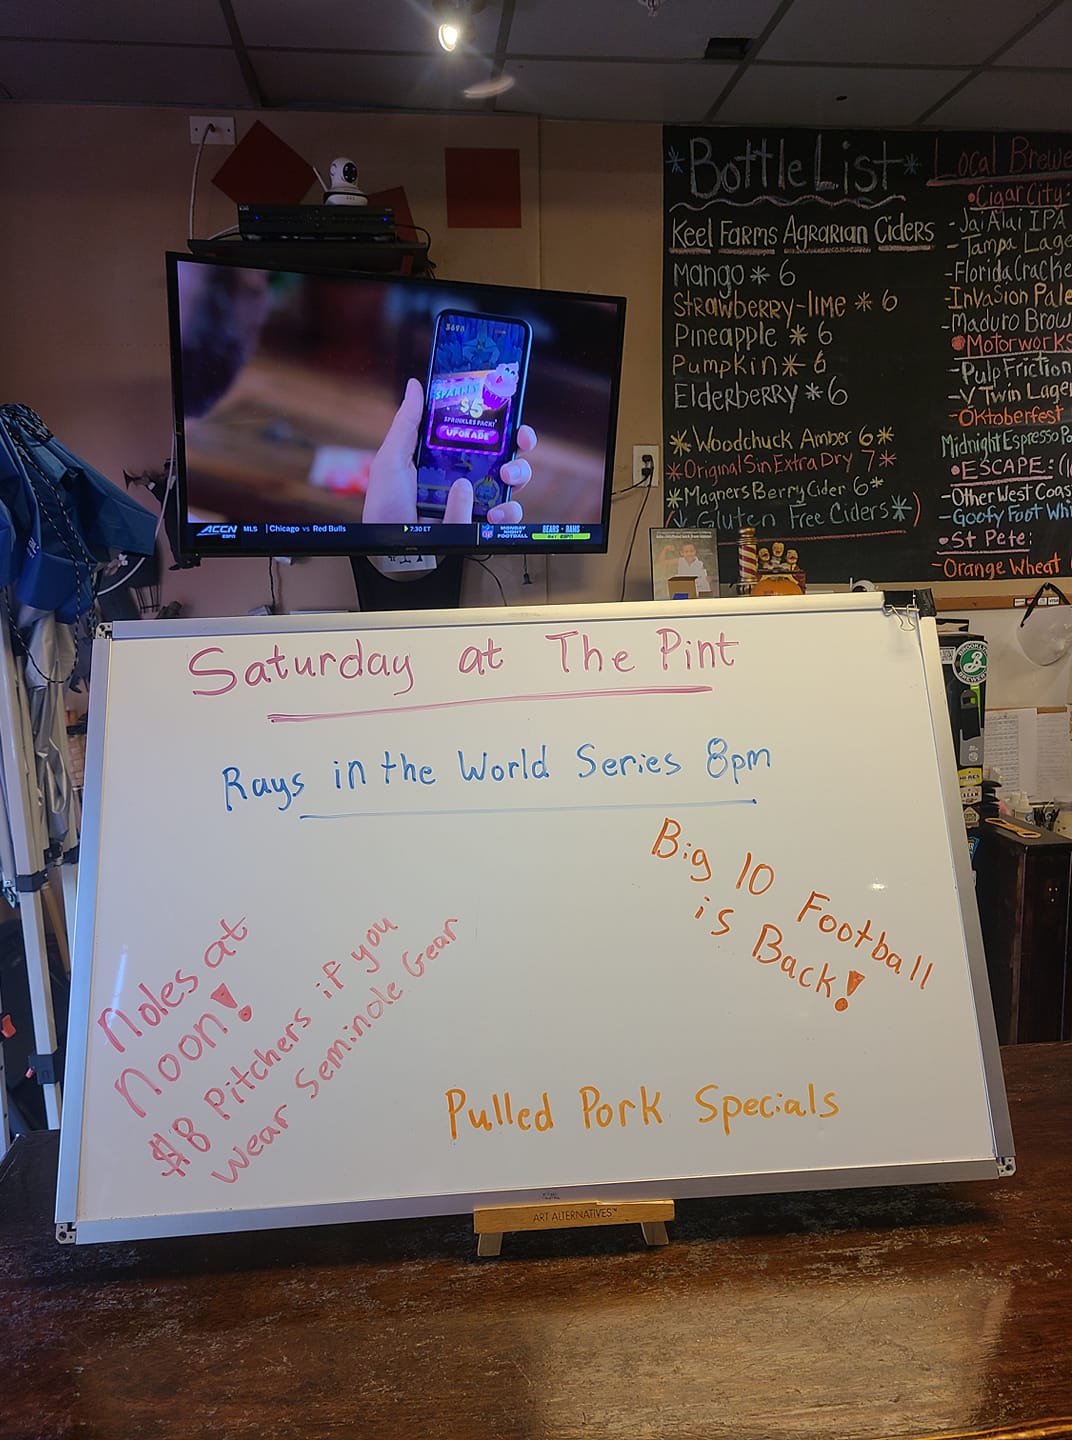 Bottle List
Keel Farms Agrarian Ciders
Mango * 6
Strawberry-lime * 6
Pineapple * 6
Pumpkin * 6
Elderberry * 6
*Woodchuck Amber 6*
*Original Sin Extra Dry 7*
*Magners Berry Cider 6*
Gluten Free Ciders*)
Local Brewe
•Cigar City:
-Jai Alai IPA
-Tampa Lage
-Florida Cracke
-Invasion Pale
-Maduro Brow
•Motorworks
-Pulp Friction
-V Twin Lager
-Oktoberfest
Midnight Espresso Po
•ESCAPE:
-Other West Coas
-Goofy Foot Whi
•St Pete:
-Orange Wheat
$5
SPRINKLES PACK!
UPGRADE
ACCN
ESPN
MLS | Chicago vs Red Bulls 7:30 ET
NFL
MONDAY NIGHT FOOTBALL
BEARS - RAMS
ESPN
Saturday at The Pint
Rays in the World Series 8pm
Big 10 Football
is Back!
Noles at
noon!
$8 Pitchers if you
wear Seminole Gear
Pulled Pork Specials
ART ALTERNATIVES™
BROOKLYN
BREWERY